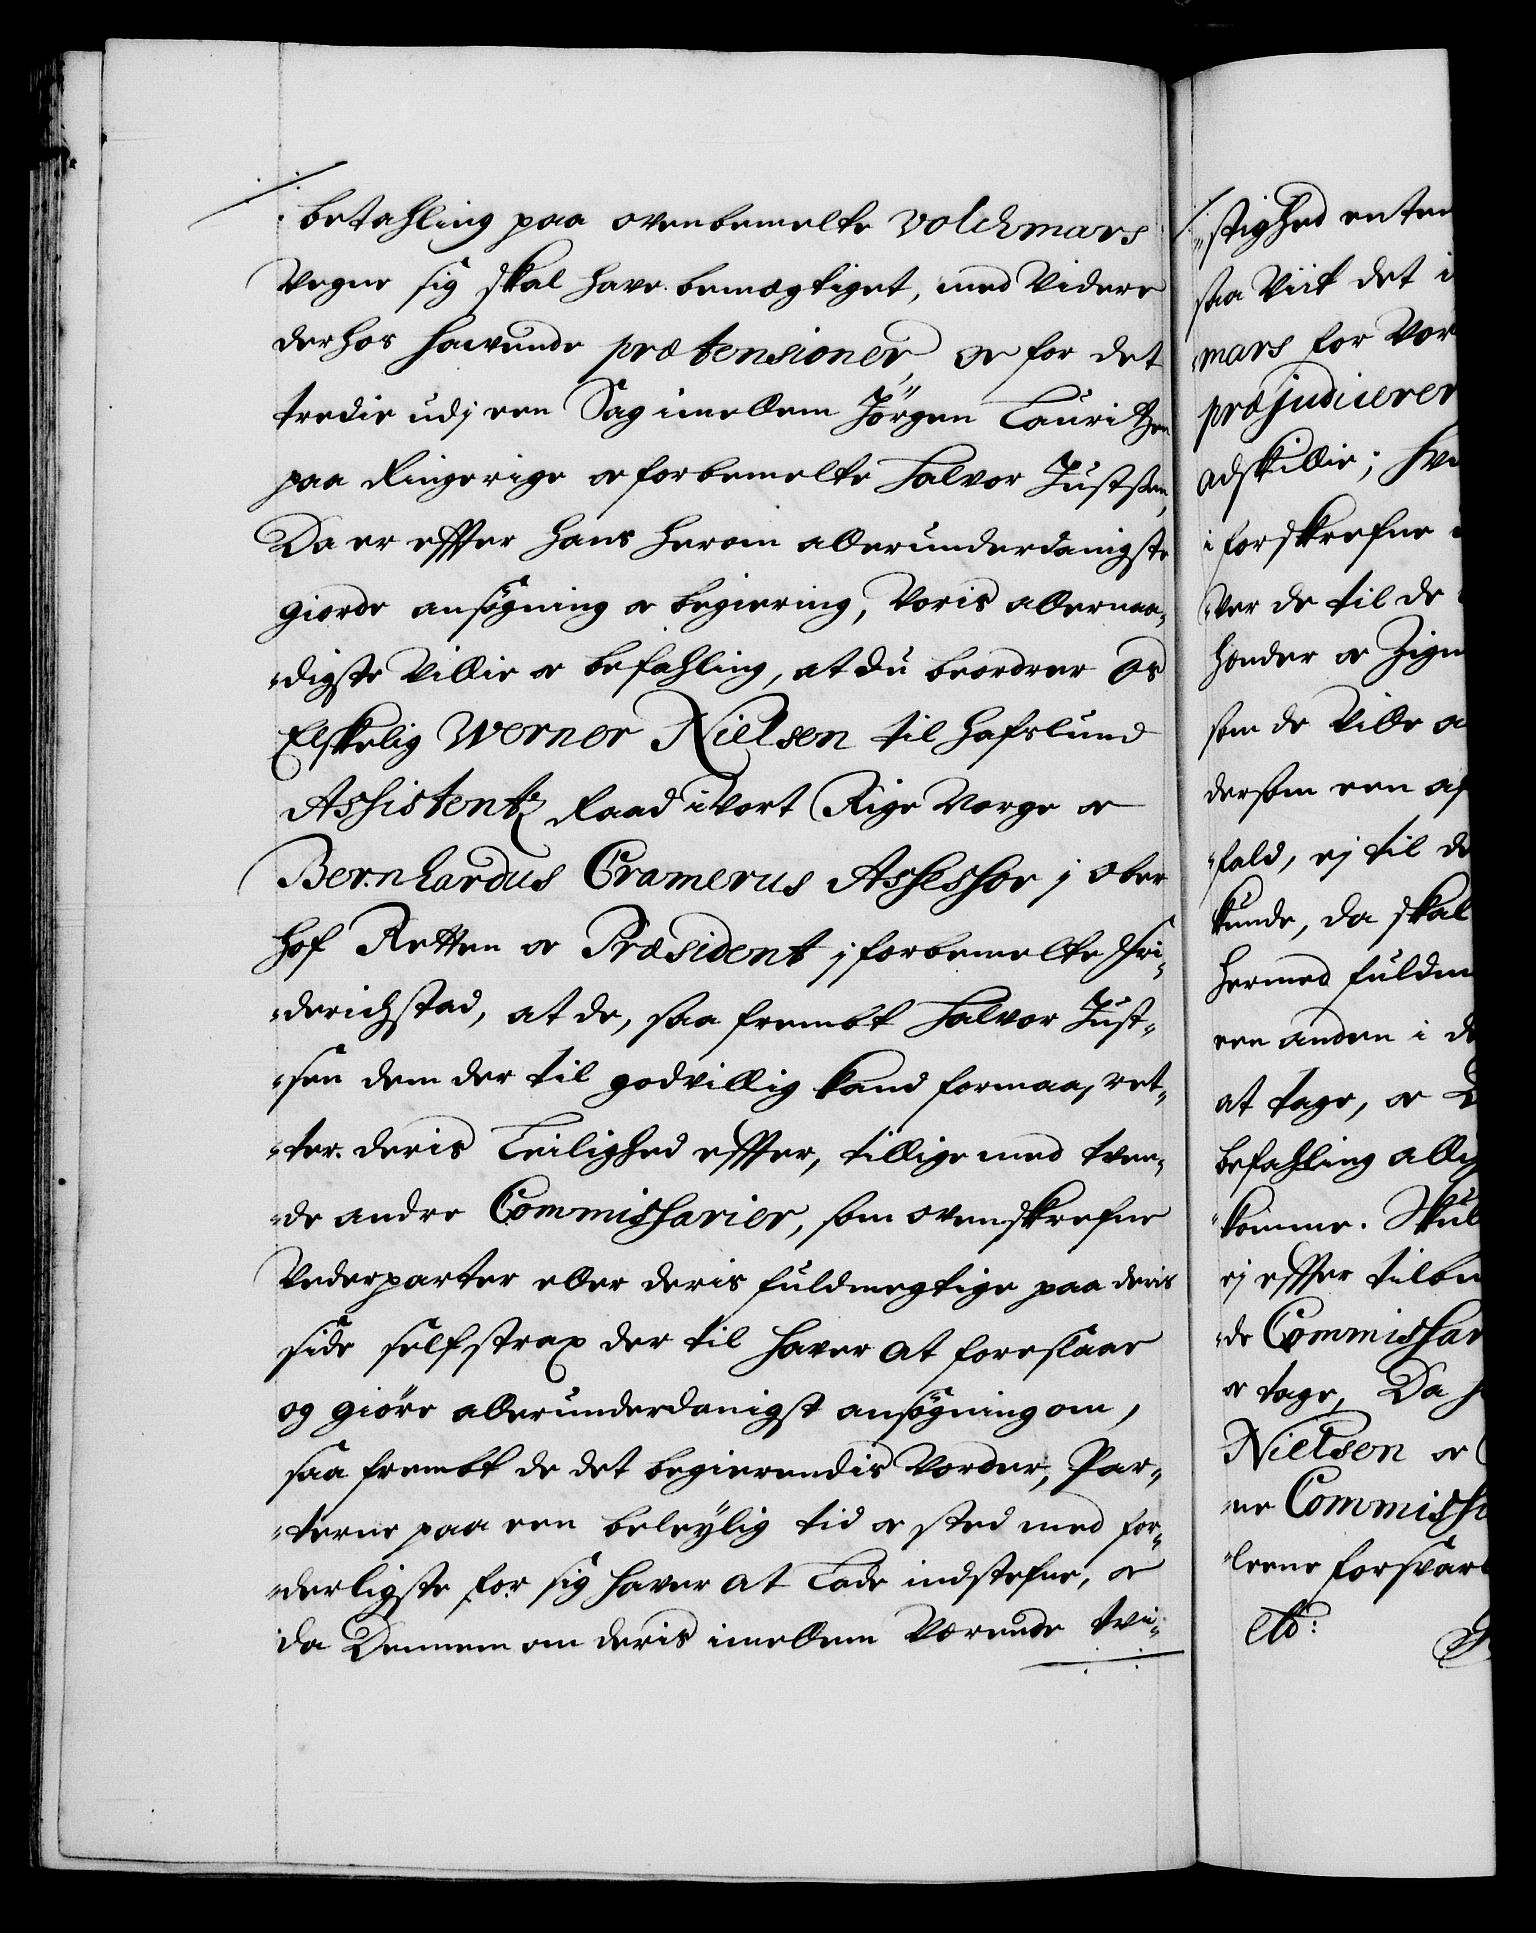 betahling paa ovenbemelte Volchmars
Vegne sig skal have bemegtiget, med Videre
derhos havende prætensioner, oc for det
tredie udj een Sag imellem Jörgen Lauritzen
paa Ringerige oc forbemelte Halvor Justsen,
Da er effter hans herom allerunderdanigste
giorde ansögning oc begiering, Voris allernaa-
digste Villie oc befahling, at du beordrer Os
Elskelig Werner Nielsen til Hafslund
Assistentz Raad i Vort Rige Norge oc
Bernhardus Cramerus Assessor j Ober
Hof Retten oc Præsident j forbemelte Fri-
derichstad, at de, saa frembt Halvor Just-
sen dem der til godvillig kand formaa, ret-
ter deris Leilighed effter, tillige med tven-
de andre Commissarier, som ovenskrefne
Vederparter eller deris fuldmegtige paa deris
side self strax der til haver at foreslaae
og giöre allerunderdanigst ansögning om,
saa frembt de det begierendis Vorder, Par-
terne paa een beleylig tid oc sted med for-
derligste for sig haver at lade indstefne, oc
da Dennem om deris imellem Værende tvi-
stighed enten
saa Viit det i
mars for Vor
præjudicerer
adskillie; hve
i forskrefne
ver de til de
hender oc Zign
som de Ville a
dersom een af
fald, ej til de
kunde, da skal
hermed fuldm
een anden i de
at tage, oc D
befahling alli
komme. Skul
ej effter tilbu
de Commissar
oc tage, Da h
Nielsen oc
ne Commissa
leene forsvar
Etc: